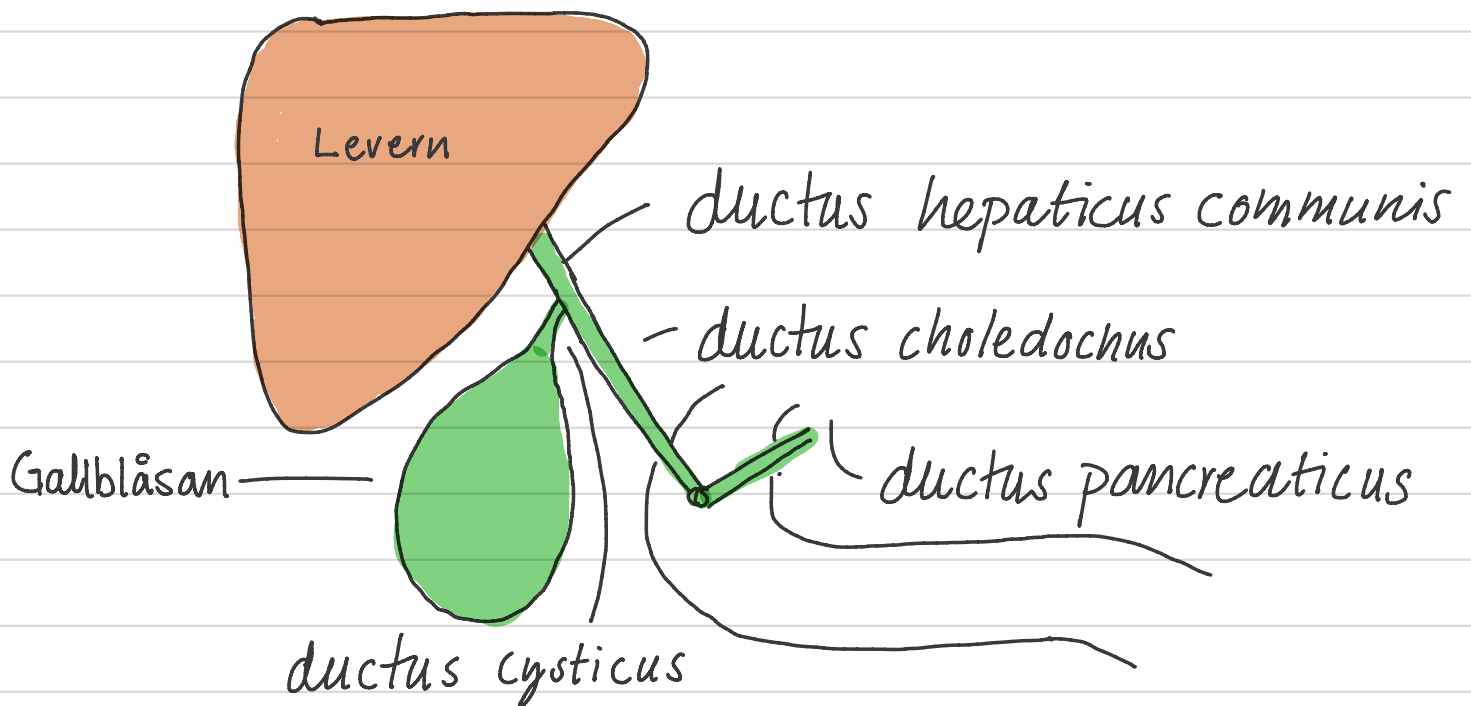 Levern
ductus hepaticus communis
ductus choledochus
Gallblåsan
ductus pancreaticus
ductus cysticus